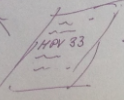 HPV 33